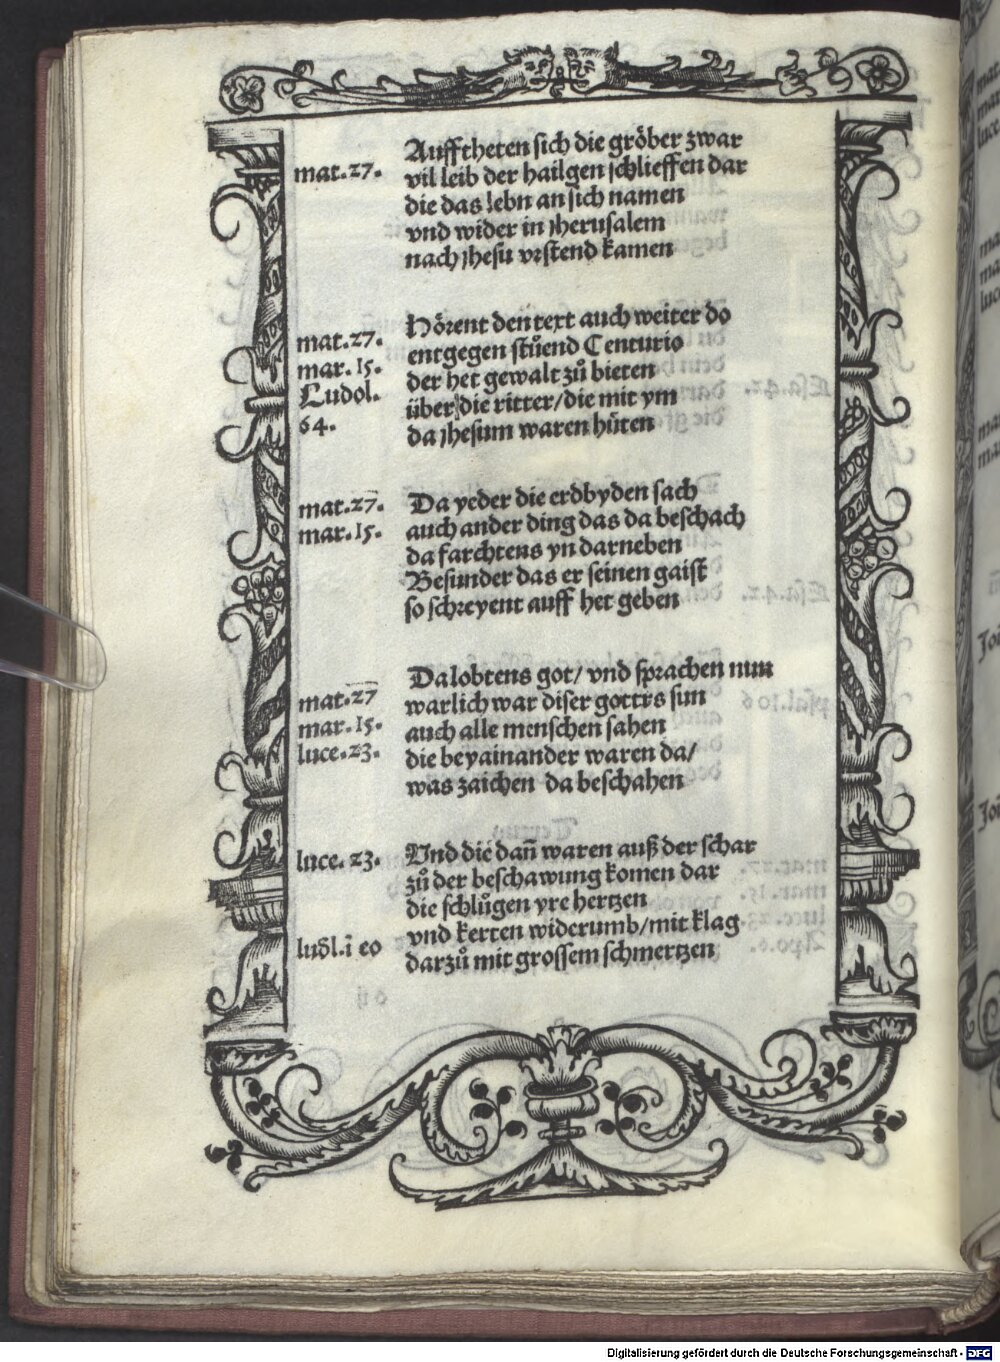 Auff theten sich die gröber zwar
mat.27. vil leib der hailgen schlieffen dar
die das lebn an sich namen
vnd wider in jherusalem
nach jhesu vrstend kamen
Hörent den text auch weiter do
mat.27. entgegen stůend Centurio
mar.15. der het gewalt zů bieten
Ludol. über die ritter/die mit ym
64. da jhesum waren hüten
mat.27. Da yeder die erdbyden sach
mar.15. auch ander ding das da beschach
da farchtens yn darneben
Besunder das er seinen gaist
so schreyent auff het geben
Da lobtens got/ vnd sprachen nun
mat.27 warlich war diser gottes sun
mar.15. auch alle menschen sahen
luce.23. die beyainander waren da/
was zaichen da beschahen
luce.23. Vnd die dañ waren auß der schar
zů der beschawung komen dar
die schlůgen yre hertzen
ludl.ī eo vnd kerten widerumb/mit klag
darzů mit grossem schmertzen
Digitalisierung gefördert durch die Deutsche Forschungsgemeinschaft - DFG